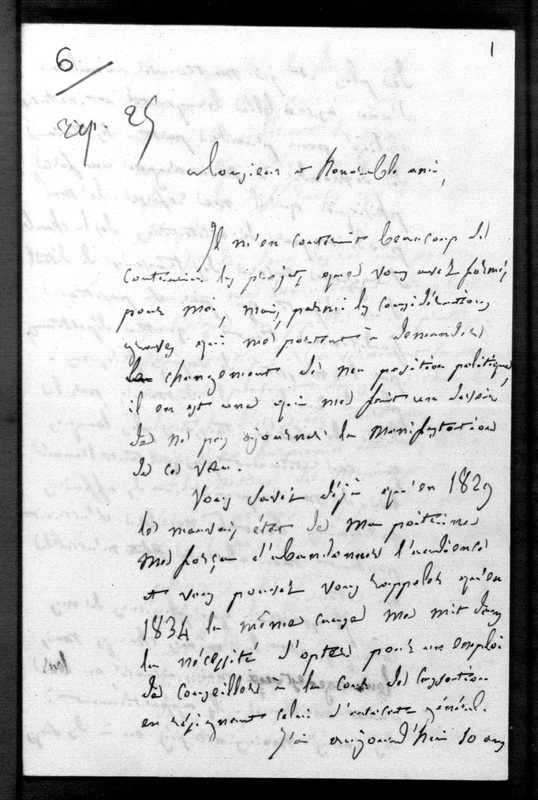 6
1
rép 25
Monsieur et honorable ami,
Il m'en couterait beaucoup de
contrarier les projets que vous avez formés
pour moi, mais, parmi les considérations
graves qui me portent à demander
le changement de ma position politique,
il en est une qui me fait un devoir
de ne pas ajourner la manifestation
de ce vœu.
Vous savez déjà qu'en 1829
le mauvais état de ma poitrine
me força d'abandonner l'audience
et vous pouvez vous rappeler qu'en
1834 la même cause me mit dans
la nécessité d'opter pour un emploi
de conseiller à la cour de cassation
en résignant celui d'avocat général.
J'ai aujourd'hui 50 ans